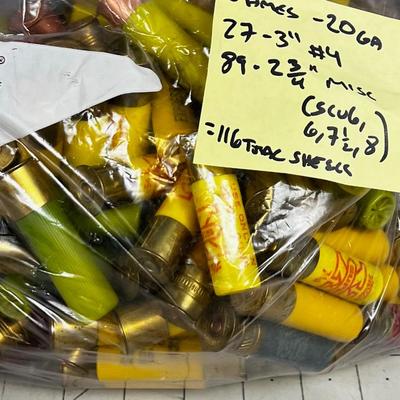 -20GA
27-3" #4
89-2 3/4" MISC
6, 7½, 8)
=116 TOTAL SHELLS